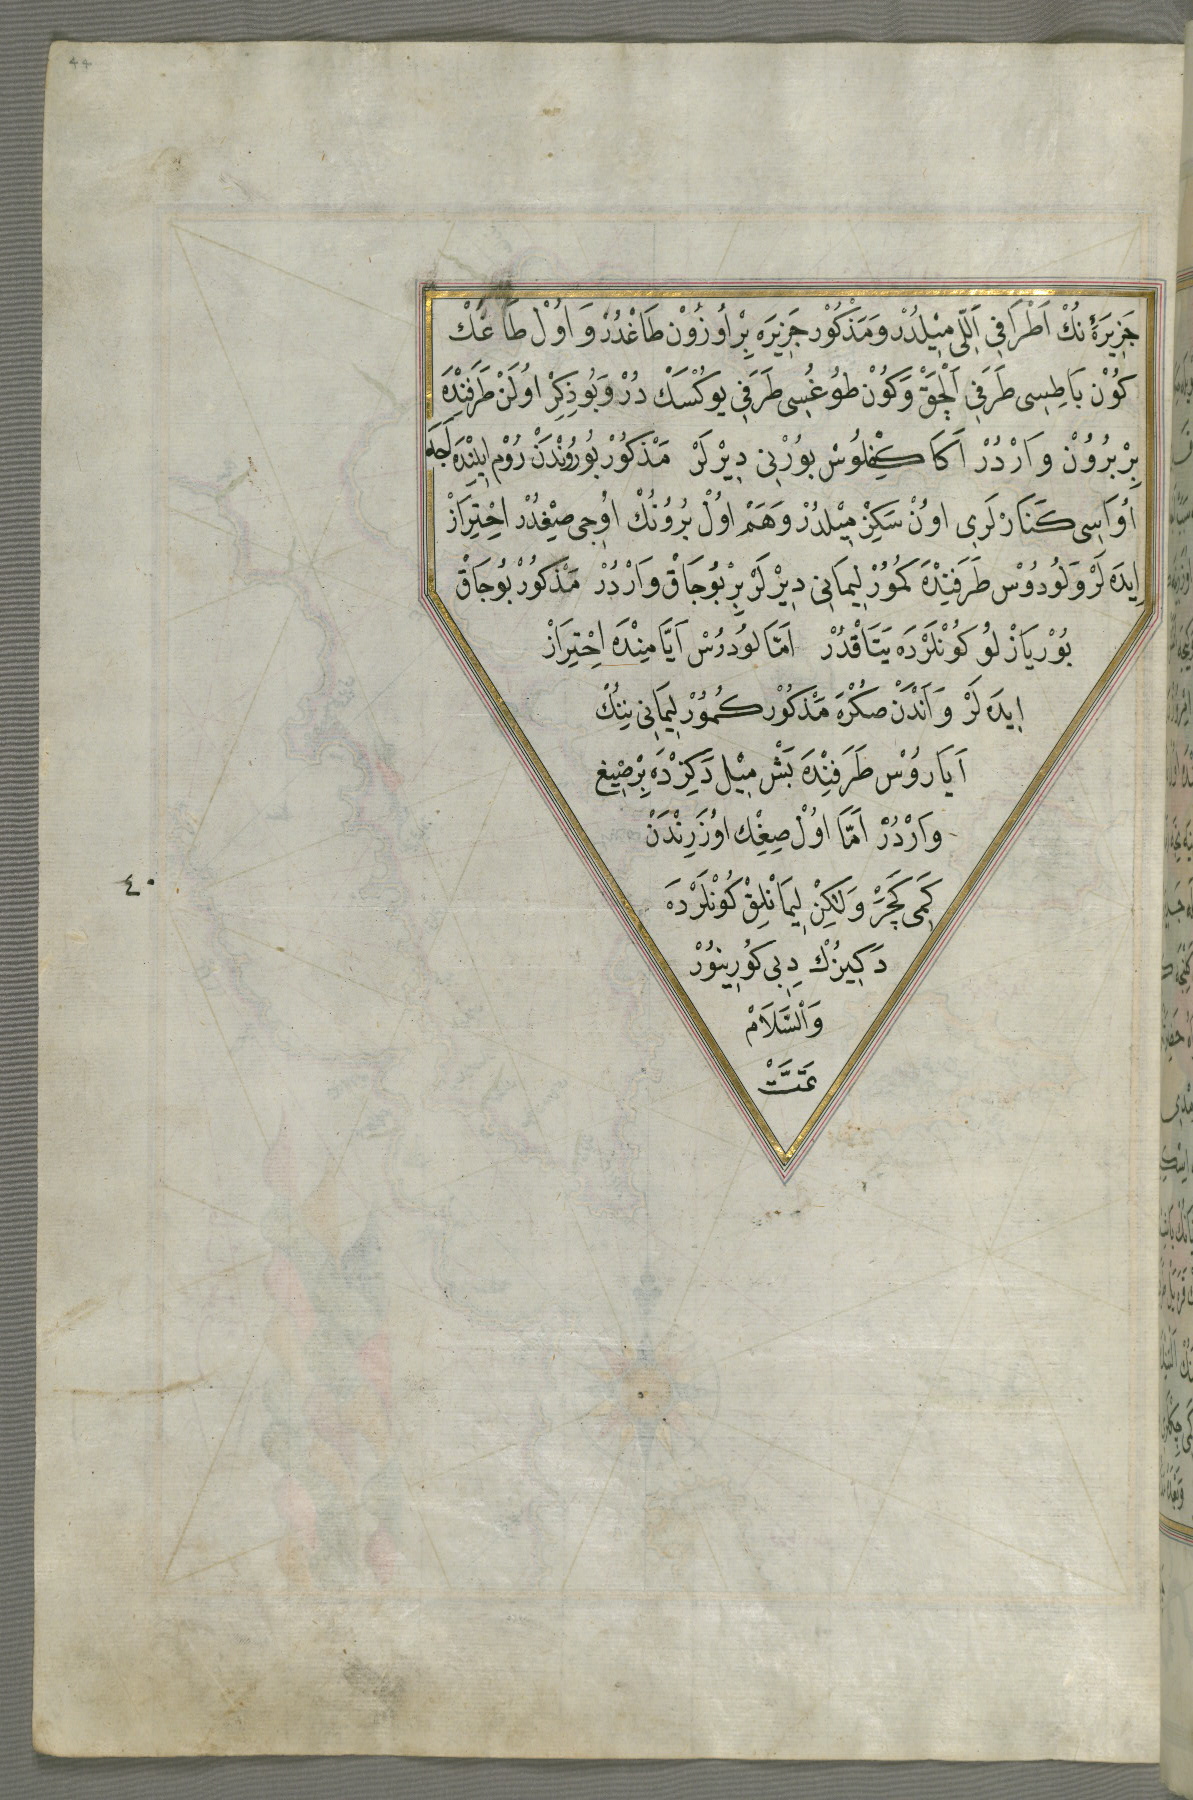 ٤٤
جَزِيرَۀ نُكْ اَطْرَافِى اَللِّى مِيلْدُرْ وَمَذْكُورْ جَزِيرَه بِرْ اُوزُونْ طَاغْدُرْ وَ اُولْ طَاغْكْ
كُونْ بَاطِسِى طَرَفِى اَلْچَقْ وَكُونْ طُوغُسِى طَرَفِى يُوكْسَكْ دُرْ وَبُو ذِكِرْ اُولَنْ طَرَفِنْدَه
بِرْ بُرُونْ وَارْدُرْ اَكَا بُورْنِى دِيرْلَرْ مَذْكُورْ بُورُونْدَنْ رُومْ اِيلِنْدَه لَجَه
اُوَاسِى كَنَارْلَرِى اُونْ سَكِزْ مِيلْدُرْ وَهَمْ اُولْ بُرُونُكْ اُوجِى صِيغْدُرْ اِحْتِرَازْ
اِيدَه لَرْ وَلُودُوسْ طَرَفِنْدَه كُمُورْ لِيمَانِى دِيرْلَرْ بِرْ بُوجَاقْ وَارْدُرْ مَذْكُورْ بُوجَاقْ
بُورْيَازْ لُو كُونْلَرْدَه يَتَاقْدُرْ اَمَّا لُودُوسْ اَيَّامِنْدَه اِحْتِرَازْ
اِيدَه لَرْ وَ اَنْدَنْ صُكْرَه مَذْكُورْ كُمُورْ لِيمَانِى نِنُكْ
اَيَارُوسْ طَرَفِنْدَه بَشْ مِيلْ دَكِزْدَه بِرْ صِيغ
وَارْدُرْ اَمَّا اُولْ صِغِكْ اُوزَرِنْدَنْ
كَمِى كَچَرْ وَلَكِنْ لِيمَانْلِقْ كُونْلَرْدَه
دَكِيزُكْ دِبِى كُورِينُورْ
وَالسَّلَامْ
تَمَّتْ
٤٠